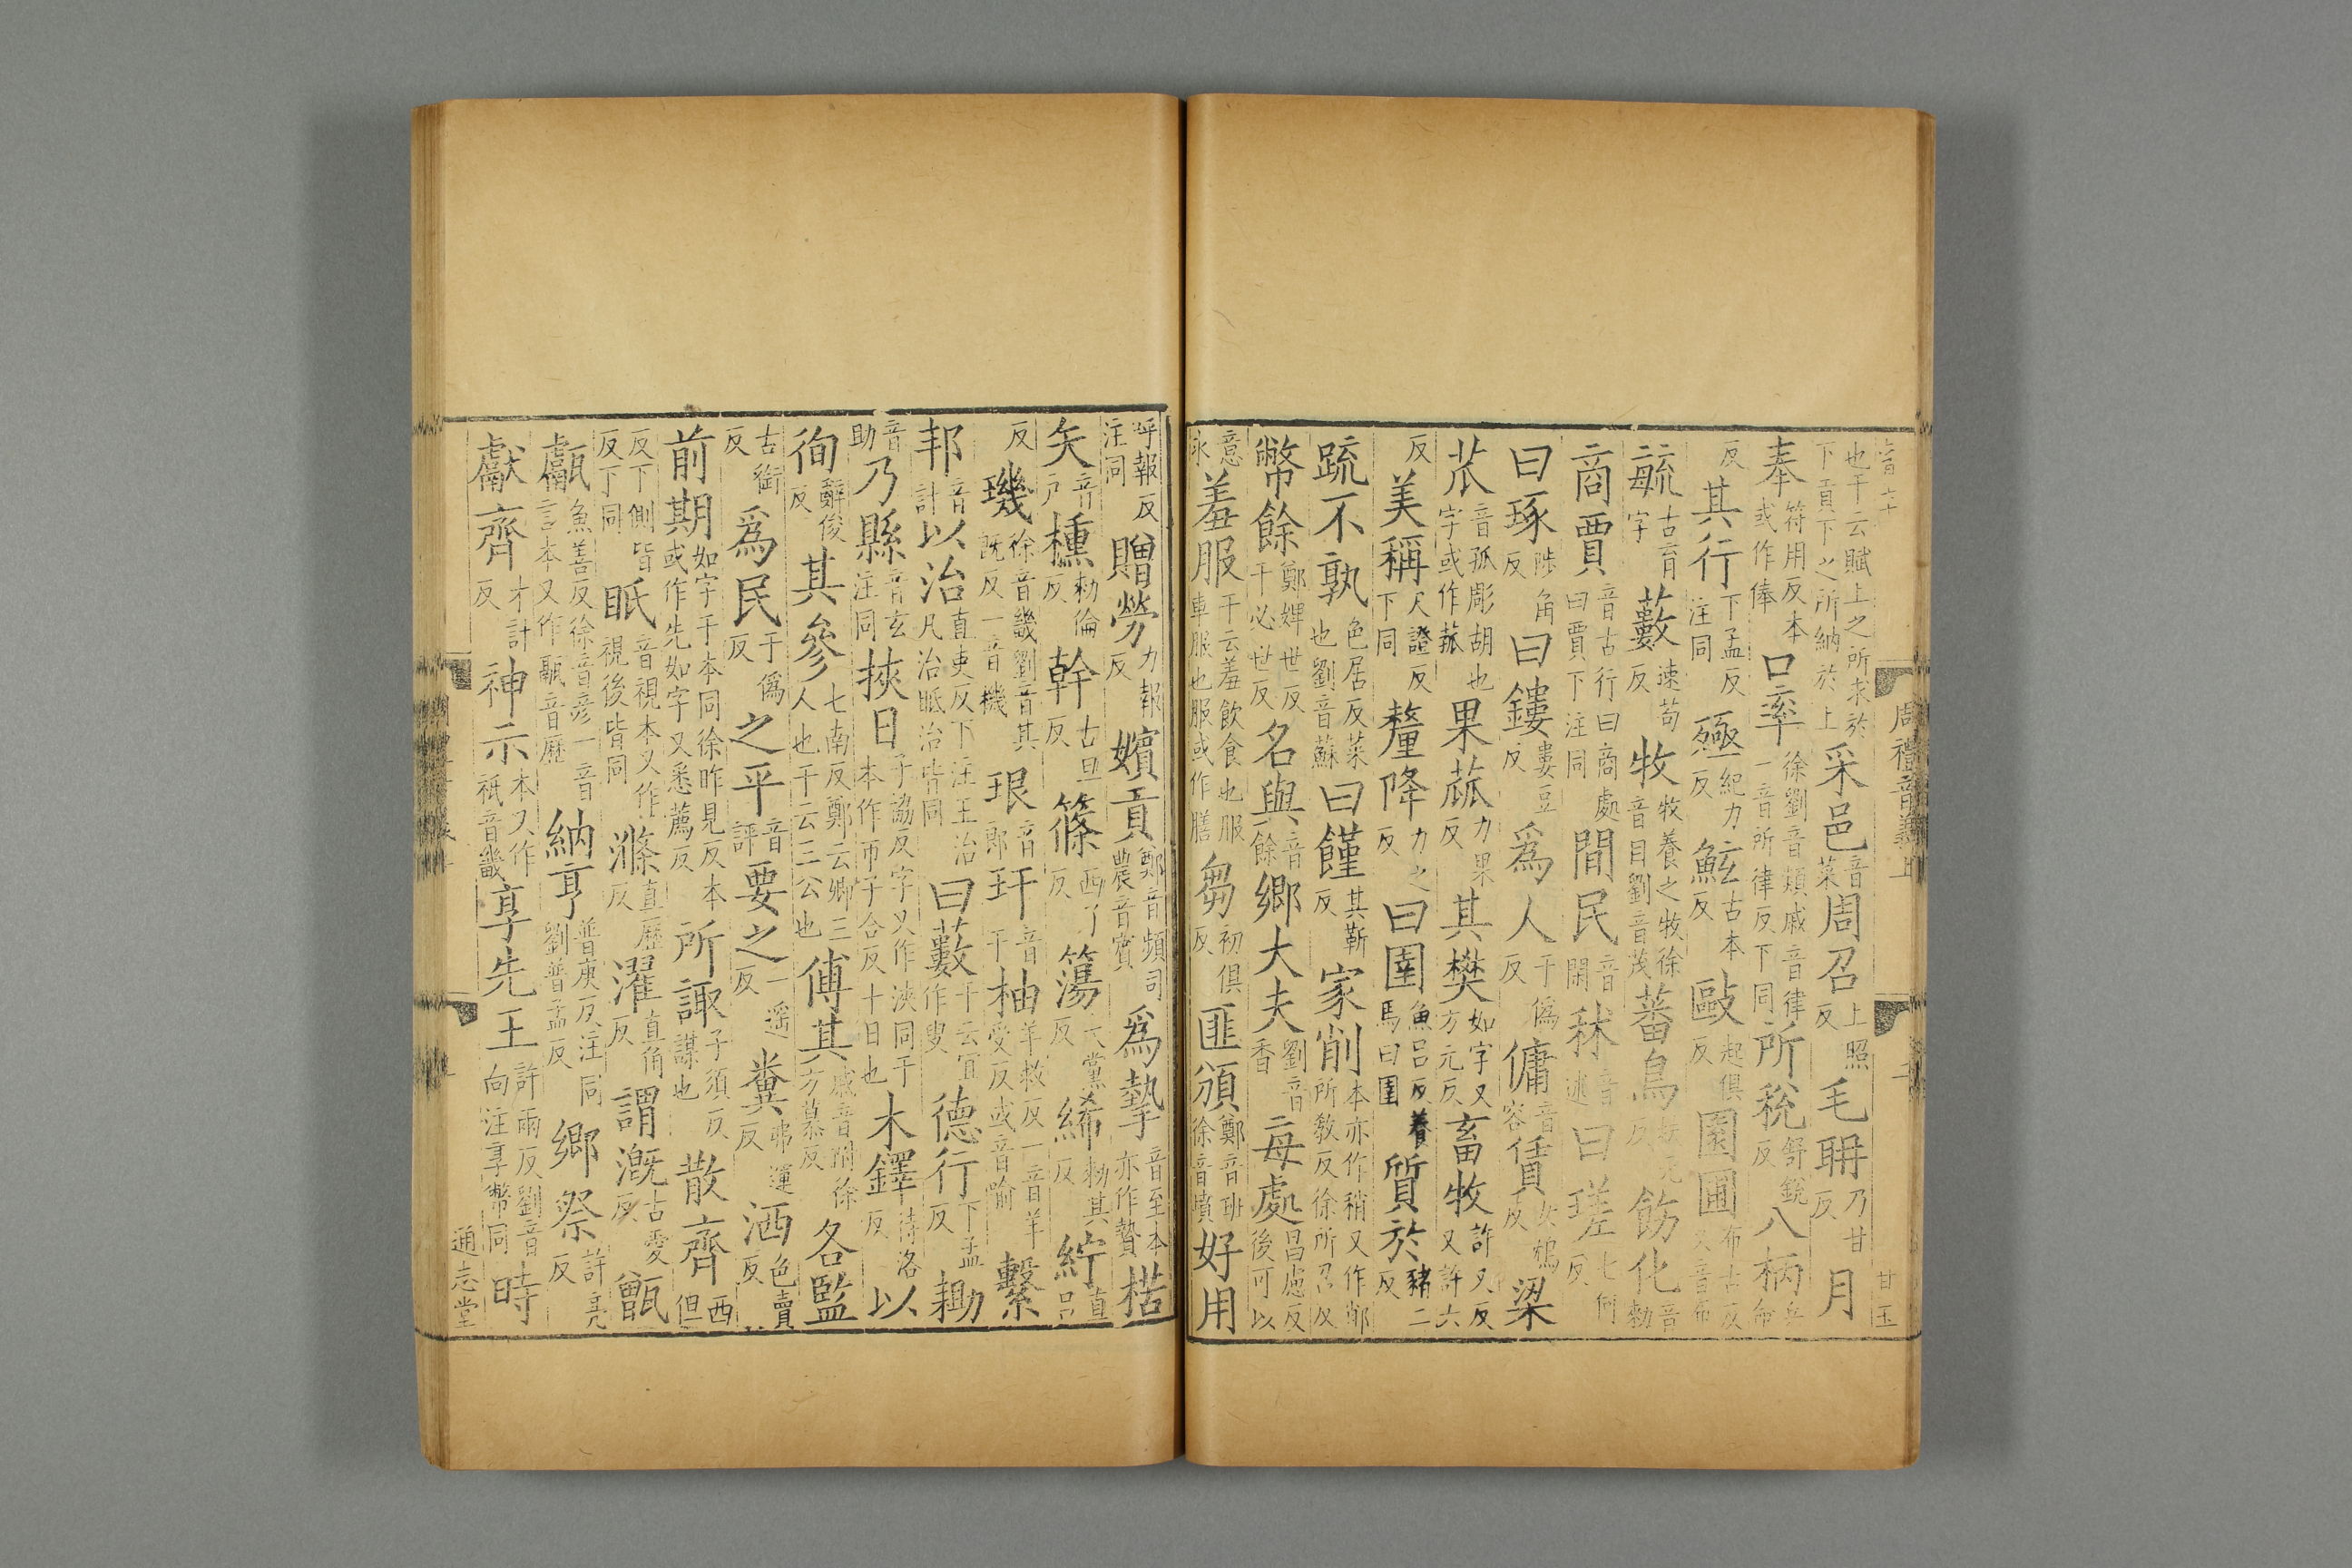 周禮音義上
也干云賦上之所求於下貢下之所納於上采邑音菜周召上照反毛聃乃甘反月
奉符用反本或作俸口率徐劉音類戚音律一音所律反下同所稅舒銳反八柄
反其行下孟反注同殛紀力反鮌古本反毆起俱反園圃布古反又音布
毓古育字藪速苟反牧牧養之牧徐音目劉音茂蕃鳥飭化音勑
商賈音古行曰商處曰賈下注同閒民音閑秫音述曰瑳七何反
曰琢陟角反曰鏤婁豆反爲人于僞反傭音容賃女鴆反梁
苽音孤彫胡也字或作菰果蓏力果反其樊如字又方元反畜牧許又反又許六
反美稱尺證反下同釐降力之反曰圉魚呂反養馬曰圉質於豬二反
疏不孰色居反菜也劉音蘇曰饉其靳反家削本亦作稍又作鄁所敎反徐所召反
幣餘鄭婢世反干必世反名與音餘鄉大夫劉音香毋處昌慮反後可以
意求羞服干云羞飲食也服車服也服或作膳芻初俱反匪頒鄭音班徐音墳好用
呼報反注同贈勞力報反嬪貢鄭音頻司農音賓爲摯音至本亦作贄楛
矢音戶櫄勑倫反幹古旦反篠西了反簜大黨反絺勑其反紵直呂
反璣徐音畿劉音其旣反一音機珢音郎玕音干柚羊救反一音羊受反或音喻繫
邦音計以治直吏反下注王治凡治眂治皆同曰藪干云宜作叟德行下孟反耡
音助乃縣音玄注同挾日子協反字又作浹同干本作帀子合反十日也木鐸待洛反以
徇辭俊反其參七南反鄭云卿三人也干云三公也傅其戚音附徐方慕反各監
古銜反爲民于僞反之平音評要之一遥反糞弗運反洒色賣反
前期如字干本同徐昨見反本或作先如字又悉薦反所諏子須反謀也散齊西但
反下側皆反下同眂音視本又作視後皆同滌直歷反濯直角反謂漑古愛反甑
甗魚善反徐音彥一音言本又作甂音歷納亨普庚反注同劉普孟反鄉祭許亮反
獻齊才計反神示本又作祇音畿享先王許兩反劉音向注享幣同時
通志堂